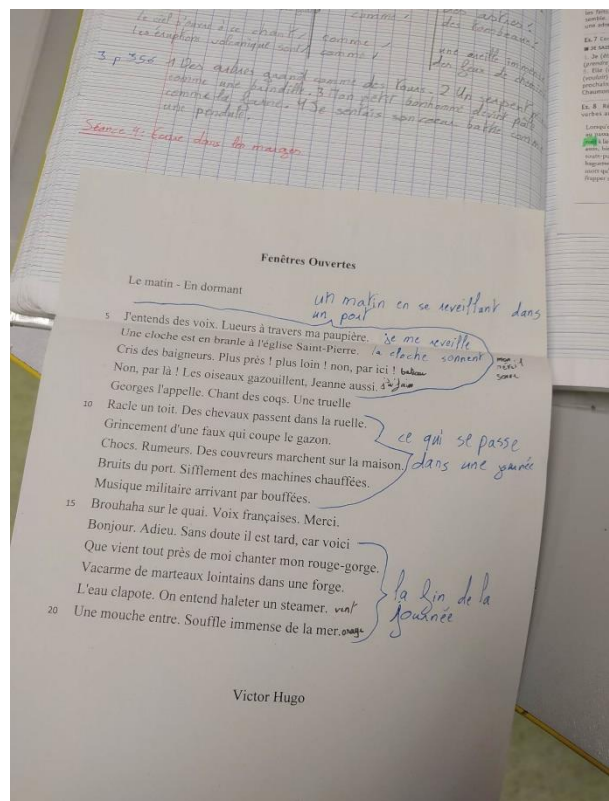 le ciel s'ouvre à ce chant / comme /
les éruption volcanique sont / comme /
des tombeaux.
une oreille immense
3 p 356 1 Des arbres grands comme des tours. 2 Un serpent
comme une brindille. 3 Mon petit bonhomme devint pâle
comme la lune. 4 Je sentais son cœur battre comme
une pendule.
Séance 4 : Ecrire dans les marges
Fenêtres Ouvertes
Le matin - En dormant
un matin en se reveillant dans
un port
5 J'entends des voix. Lueurs à travers ma paupière. je me reveille
Une cloche est en branle à l'église Saint-Pierre. la cloche sonnent
Cris des baigneurs. Plus près ! plus loin ! non, par ici ! bateau
Non, par là ! Les oiseaux gazouillent, Jeanne aussi.
Georges l'appelle. Chant des coqs. Une truelle
10 Racle un toit. Des chevaux passent dans la ruelle.
Grincement d'une faux qui coupe le gazon.
Chocs. Rumeurs. Des couvreurs marchent sur la maison.
Bruits du port. Sifflement des machines chauffées.
Musique militaire arrivant par bouffées.
ce qui se passe
dans une journée
15 Brouhaha sur le quai. Voix françaises. Merci.
Bonjour. Adieu. Sans doute il est tard, car voici
Que vient tout près de moi chanter mon rouge-gorge.
Vacarme de marteaux lointains dans une forge.
L'eau clapote. On entend haleter un steamer. vent
20 Une mouche entre. Souffle immense de la mer. orage
la fin de la
journée
Victor Hugo